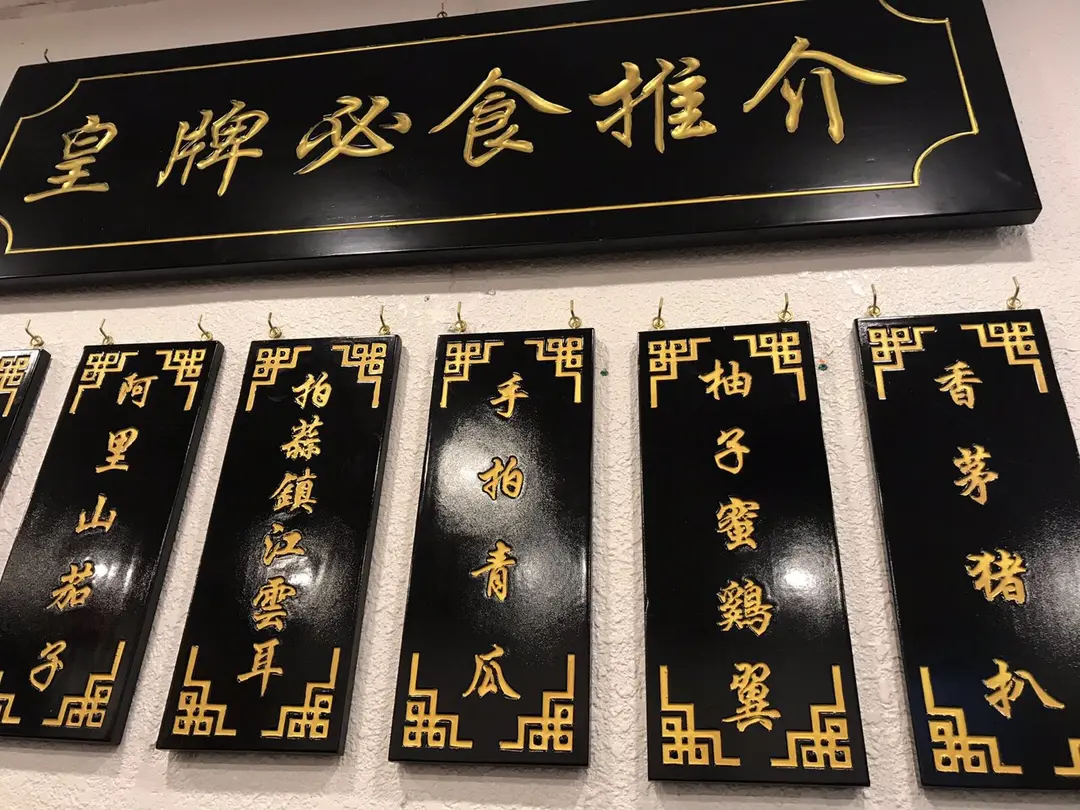 皇牌必食推介
阿里山茄子
拍蒜鎮江雲耳
手拍青瓜
柚子蜜鷄翼
香茅猪扒